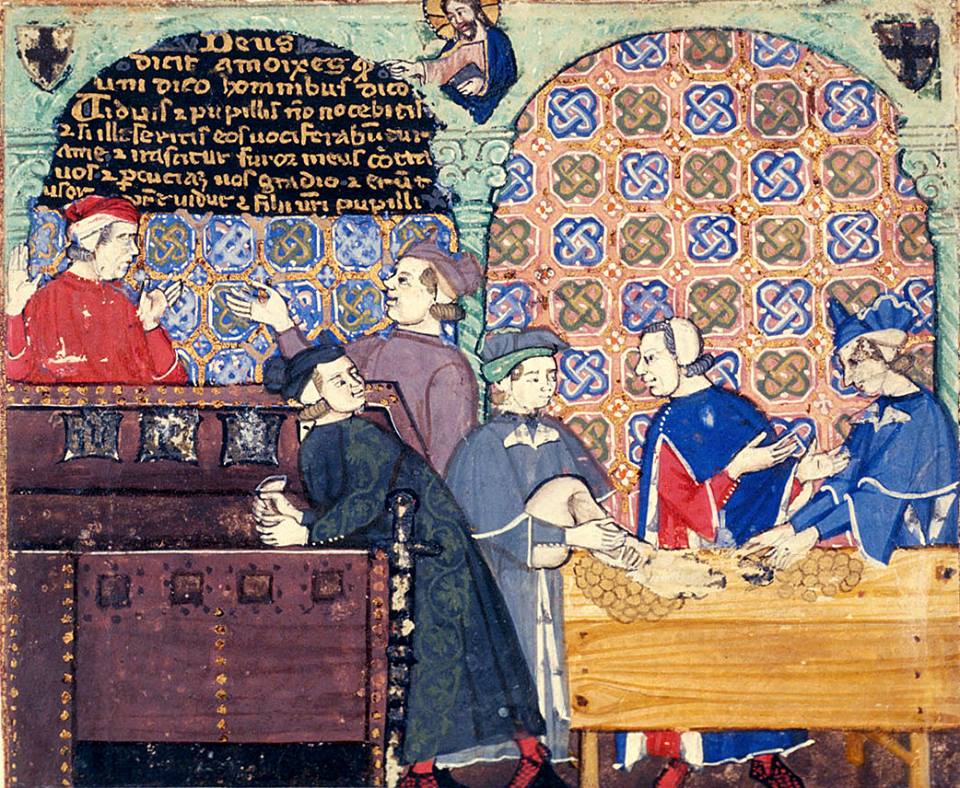 Deus
dicit amoixes q
uni dico hominibus dico
Uiduis ⁊ pupillis no nocebitis
⁊ si illeseritis eos uociferabut
me ⁊ irascitur furor meus cotra
uos ⁊ pcuciaz uos gladio ⁊ erut
uidue ⁊ filii uri pupilli